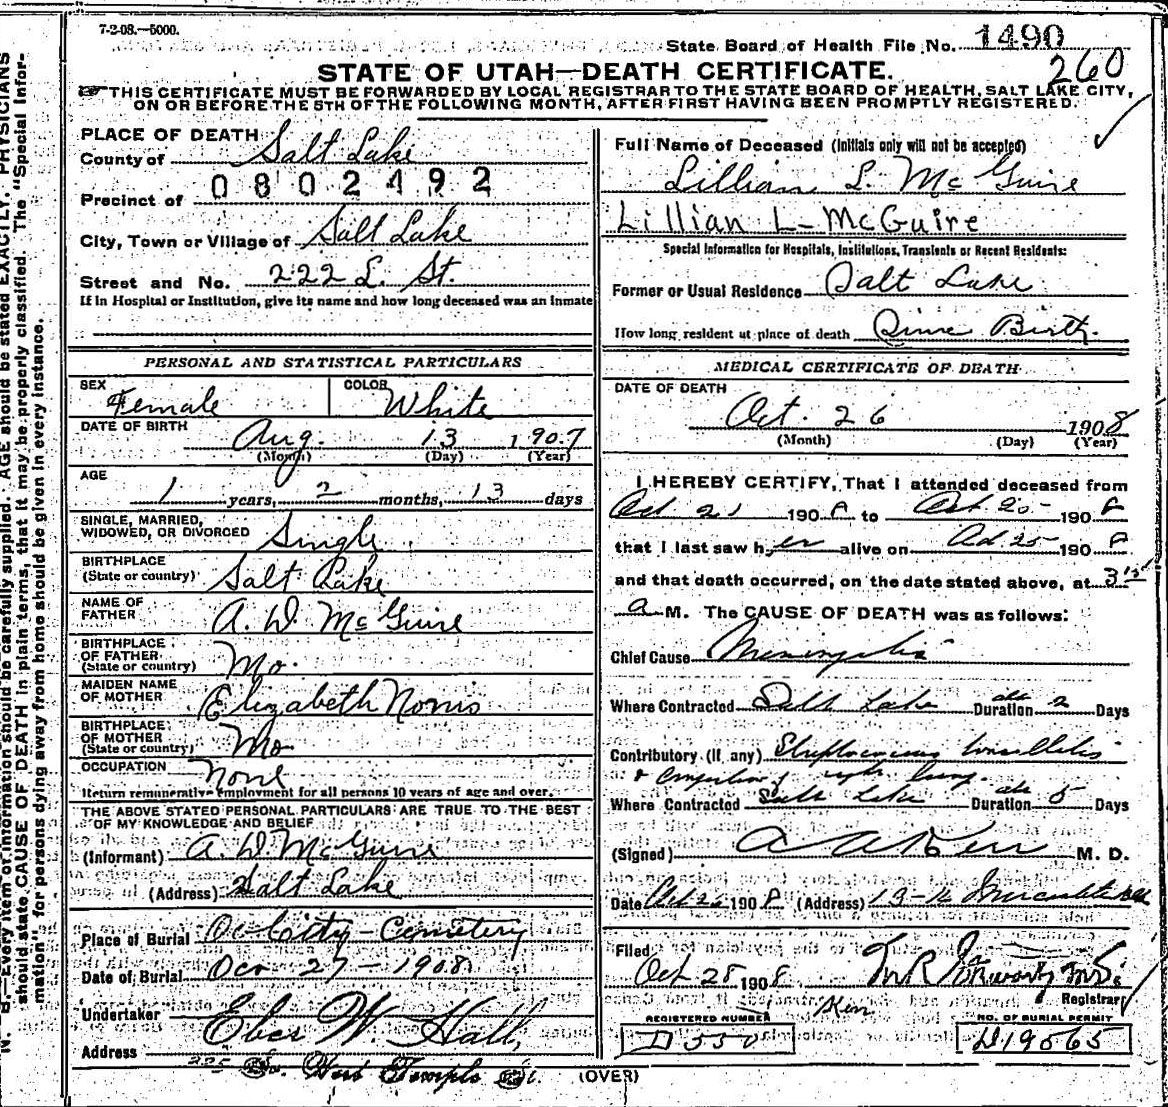 7-2-08.—5000.
State Board of Health File No. 1490
260
STATE OF UTAH—DEATH CERTIFICATE.
THIS CERTIFICATE MUST BE FORWARDED BY LOCAL REGISTRAR TO THE STATE BOARD OF HEALTH, SALT LAKE CITY,
ON OR BEFORE THE 5TH OF THE FOLLOWING MONTH, AFTER FIRST HAVING BEEN PROMPTLY REGISTERED.
PLACE OF DEATH
County of Salt Lake
0802492
Precinct of
City, Town or Village of Salt Lake
Street and No. 222 E. St.
If in Hospital or Institution, give its name and how long deceased was an inmate
PERSONAL AND STATISTICAL PARTICULARS
SEX Female
COLOR White
DATE OF BIRTH Aug. 13 1907
(Month) (Day) (Year)
AGE 1 years, 2 months, 13 days
SINGLE, MARRIED,
WIDOWED, OR DIVORCED Single
BIRTHPLACE
(State or country) Salt Lake
NAME OF
FATHER A. D. McGuire
BIRTHPLACE
OF FATHER
(State or country) Mo.
MAIDEN NAME
OF MOTHER Elizabeth Norris
BIRTHPLACE
OF MOTHER
(State or country) Mo
OCCUPATION None
Return remunerative employment for all persons 10 years of age and over.
THE ABOVE STATED PERSONAL PARTICULARS ARE TRUE TO THE BEST
OF MY KNOWLEDGE AND BELIEF
(Informant) A. D. McGuire
(Address) Salt Lake
Place of Burial City Cemetery
Date of Burial Oct 27 - 1908
Undertaker Eber W. Hall,
Address 225 So. West Temple St.
Full Name of Deceased (Initials only will not be accepted)
Lillian L. McGuire
Lillian L- McGuire
Special Information for Hospitals, Institutions, Transients or Recent Residents:
Former or Usual Residence Salt Lake
How long resident at place of death Since Birth.
MEDICAL CERTIFICATE OF DEATH
DATE OF DEATH
Oct. 26 1908
(Month) (Day) (Year)
I HEREBY CERTIFY, That I attended deceased from
Oct. 21 1908 to Oct. 25 1908
that I last saw her alive on Oct 25 1908
and that death occurred, on the date stated above, at 3 15
a M. The CAUSE OF DEATH was as follows:
Chief Cause Meningitis
Where Contracted Salt Lake Duration abt 2 Days
Contributory (if any) Streptococcus tonsillitis
& congestion of right lung.
Where Contracted Salt Lake Duration abt 5 Days
(Signed) A A Kerr M. D.
Date Oct 26 1908 (Address) 13-14
Filed
Oct 28 1908
Registrar
Kerr
REGISTERED NUMBER
D 550
NO. OF BURIAL PERMIT
D19565
(OVER)
N. B.—Every item of information should be carefully supplied. AGE should be stated EXACTLY. PHYSICIANS
should state CAUSE OF DEATH in plain terms, that it may be properly classified. The "Special Infor-
mation" for persons dying away from home should be given in every instance.